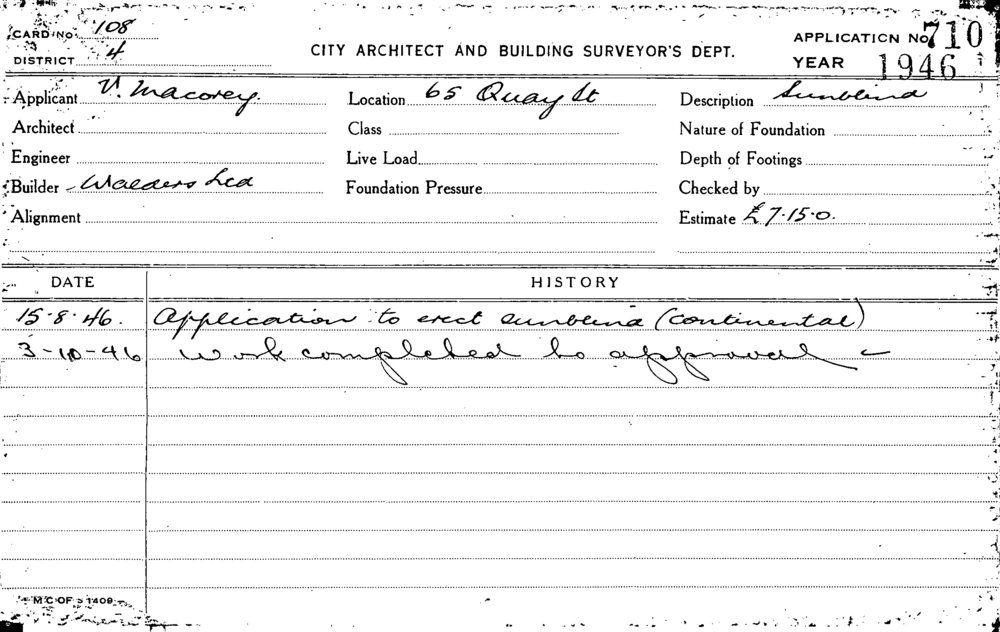 CARD NO. 108
DISTRICT 4
CITY ARCHITECT AND BUILDING SURVEYOR'S DEPT.
APPLICATION No. 710
YEAR 1946
Applicant V. Macorey. Location 65 Quay St Description Sunblind
Architect Class Nature of Foundation
Engineer Live Load Depth of Footings
Builder Walders Ltd Foundation Pressure Checked by
Alignment Estimate £7.15.0.
DATE HISTORY
15.8.46. Application to erect sunblind (continental)
3-10-46 Work completed to approval –
M C OF S 1409